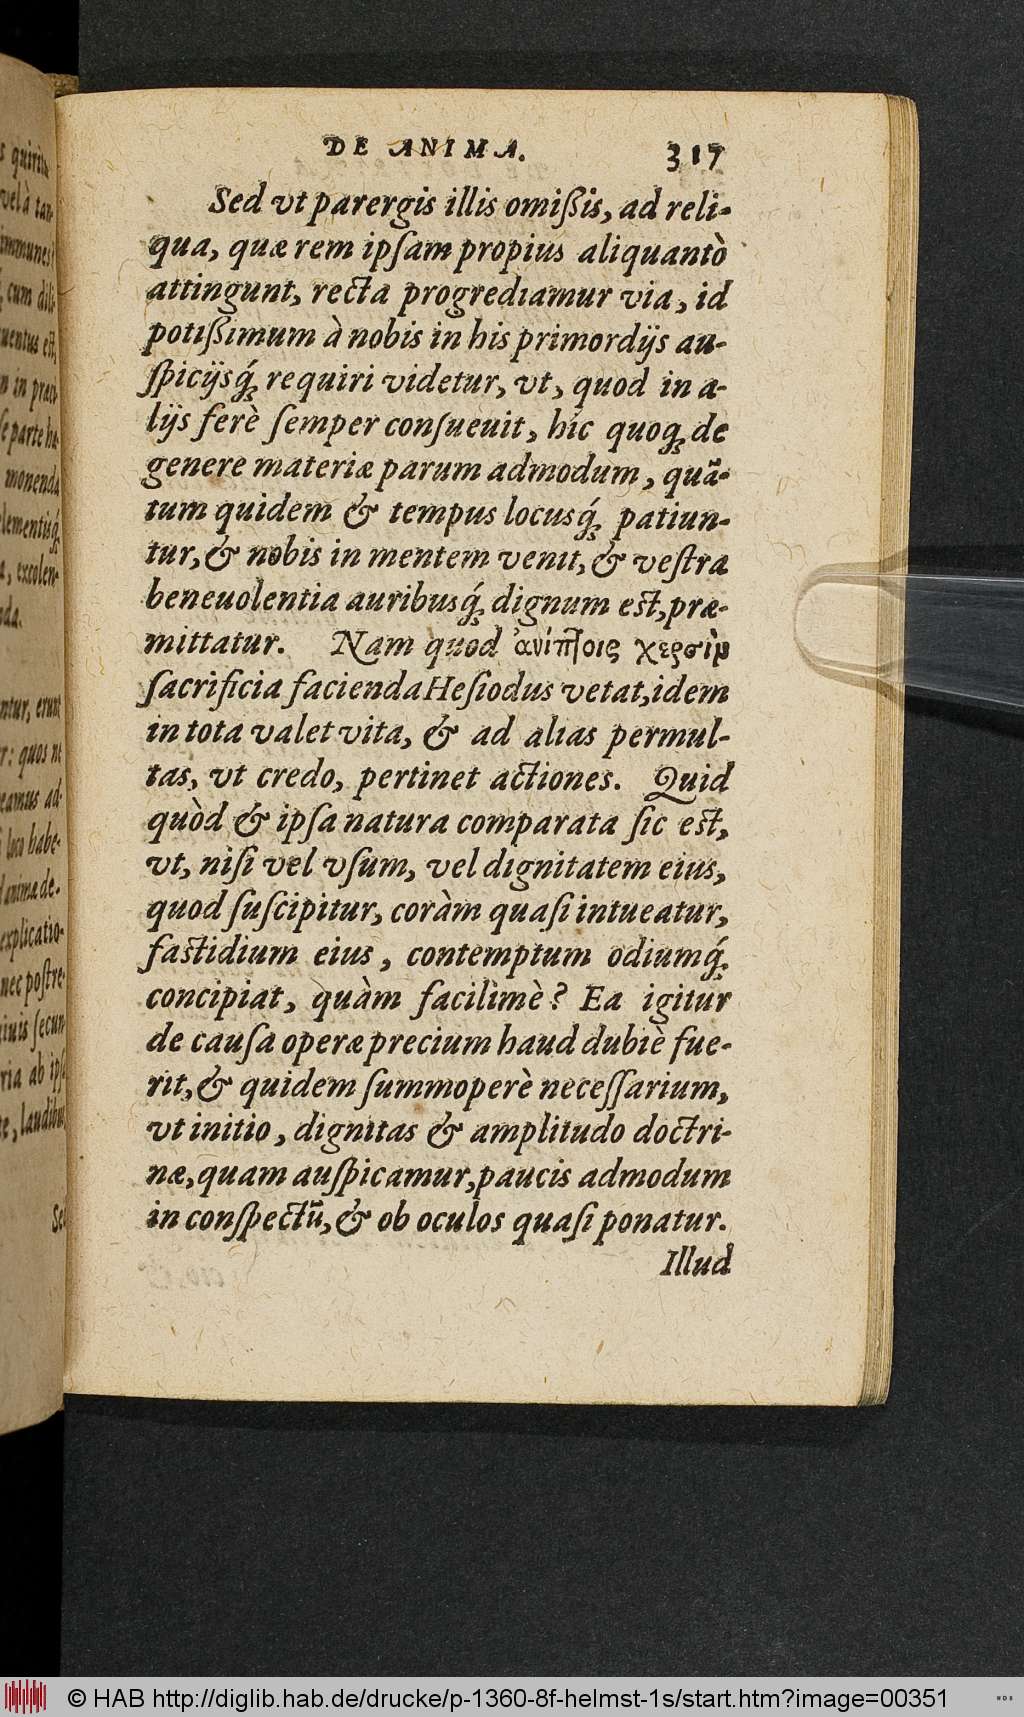 DE ANIMA. 317
Sed vt parergis illis omißis, ad reli-
qua, quæ rem ipſam propius aliquantò
attingunt, recta progrediamur via, id
potißimum à nobis in his primordijs au-
ſpicijsq́; requiri videtur, vt, quod in a-
lijs ferè ſemper conſueuit, hîc quoq; de
genere materiæ parum admodum, quã-
tum quidem & tempus locusq́; patiun-
tur, & nobis in mentem venit, & veſtra
beneuolentia auribusq́; dignum eſt, præ-
mittatur. Nam quod ἀνίπτοις χερσὶν
ſacrificia facienda Heſiodus vetat, idem
in tota valet vita, & ad alias permul-
tas, vt credo, pertinet actiones. Quid
quòd & ipſa natura comparata ſic eſt,
vt, niſi vel vſum, vel dignitatem eius,
quod ſuſcipitur, coràm quaſi intueatur,
faſtidium eius, contemptum odiumq́;
concipiat, quàm facilimè? Ea igitur
de cauſa operæ precium haud dubiè fue-
rit, & quidem ſummoperè neceſſarium,
vt initio, dignitas & amplitudo doctri-
næ, quam auſpicamur, paucis admodum
in conſpectũ, & ob oculos quaſi ponatur.
Illud
s quirita
vel à tan-
immunes
cum dili-
uentus eſt,
n in præci-
ſe parte ha-
monenda
lementisq́;
a, excolen-
nda.
ntur, erunt
r: quos ne
eamus ad
loco habe-
d anima de-
explicatio-
nec poſtre-
iuis ſecun
ria ab ipſa
re, laudibus
Sed
© HAB http://diglib.hab.de/drucke/p-1360-8f-helmst-1s/start.htm?image=00351